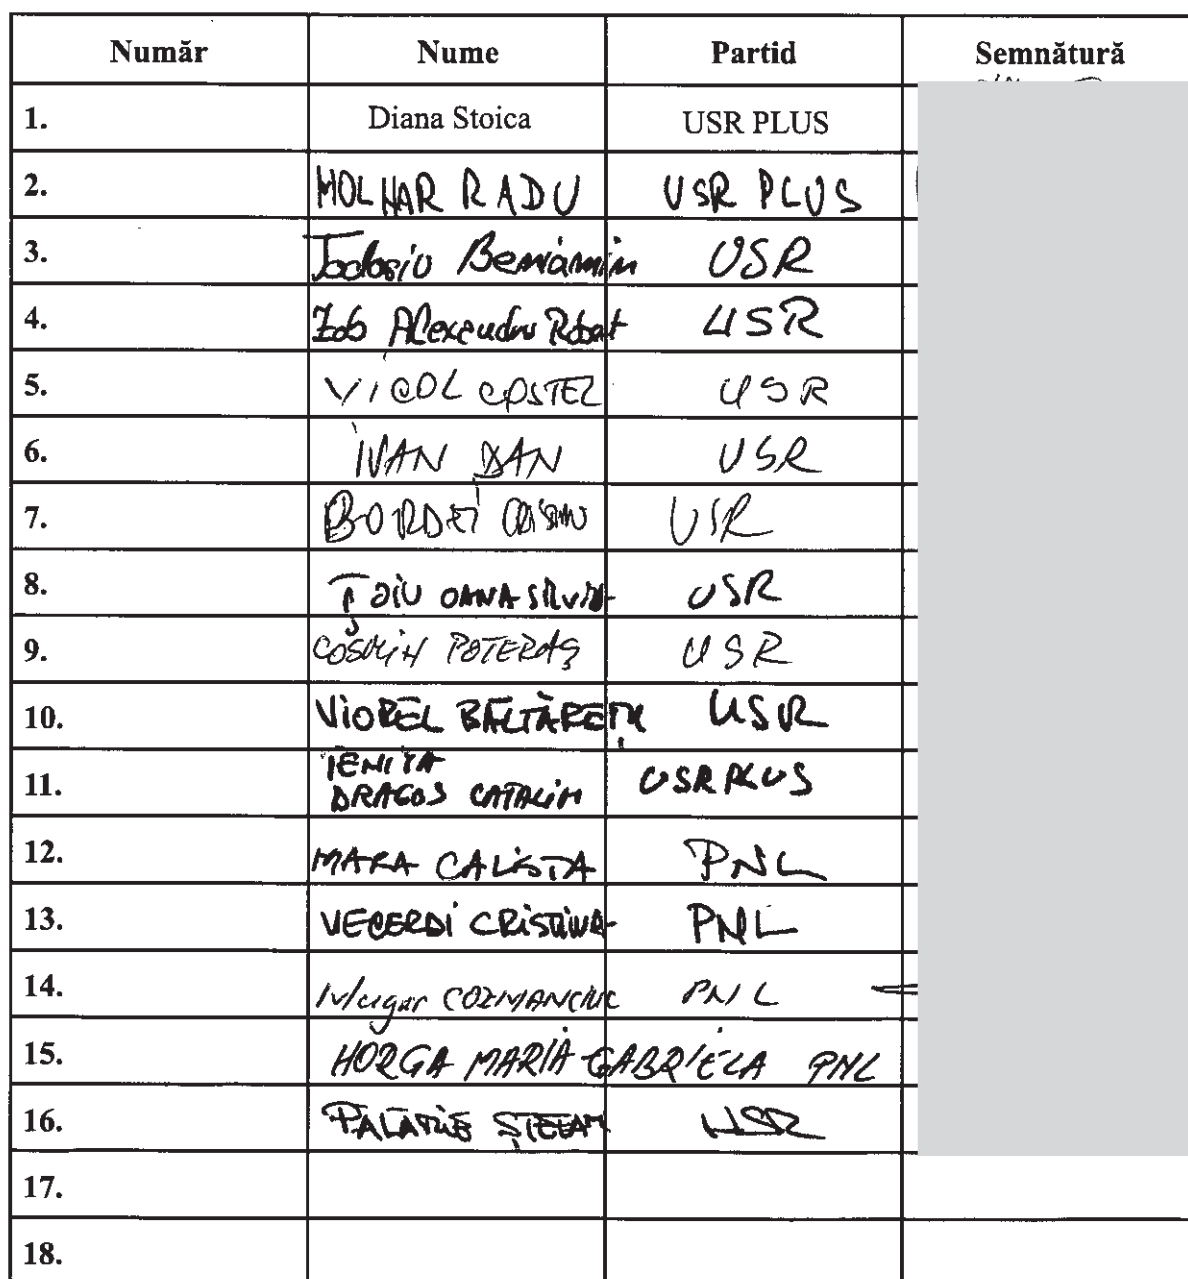 Număr Nume Partid Semnătură
1. Diana Stoica USR PLUS
2. MOLNAR RADU USR PLUS
3. Todosiu Beniamin USR
4. Zob Alexandru Robert USR
5. VICOL COSTEL USR
6. IVAN DAN USR
7. BORDEI COSMIN USR
8. ȚOIU OANA SILVIA USR
9. COSMIN POTERAȘ USR
10. VIOREL BĂLTĂREȚU USR
11. TENITA
DRAGOS CATALIN USR PLUS
12. MARA CALISTA PNL
13. VECERDI CRISTINA PNL
14. Mugur COZMANCIUC PNL
15. HORGA MARIA GABRIELA PNL
16. PALARIE ȘTEFAN USR
17.
18.